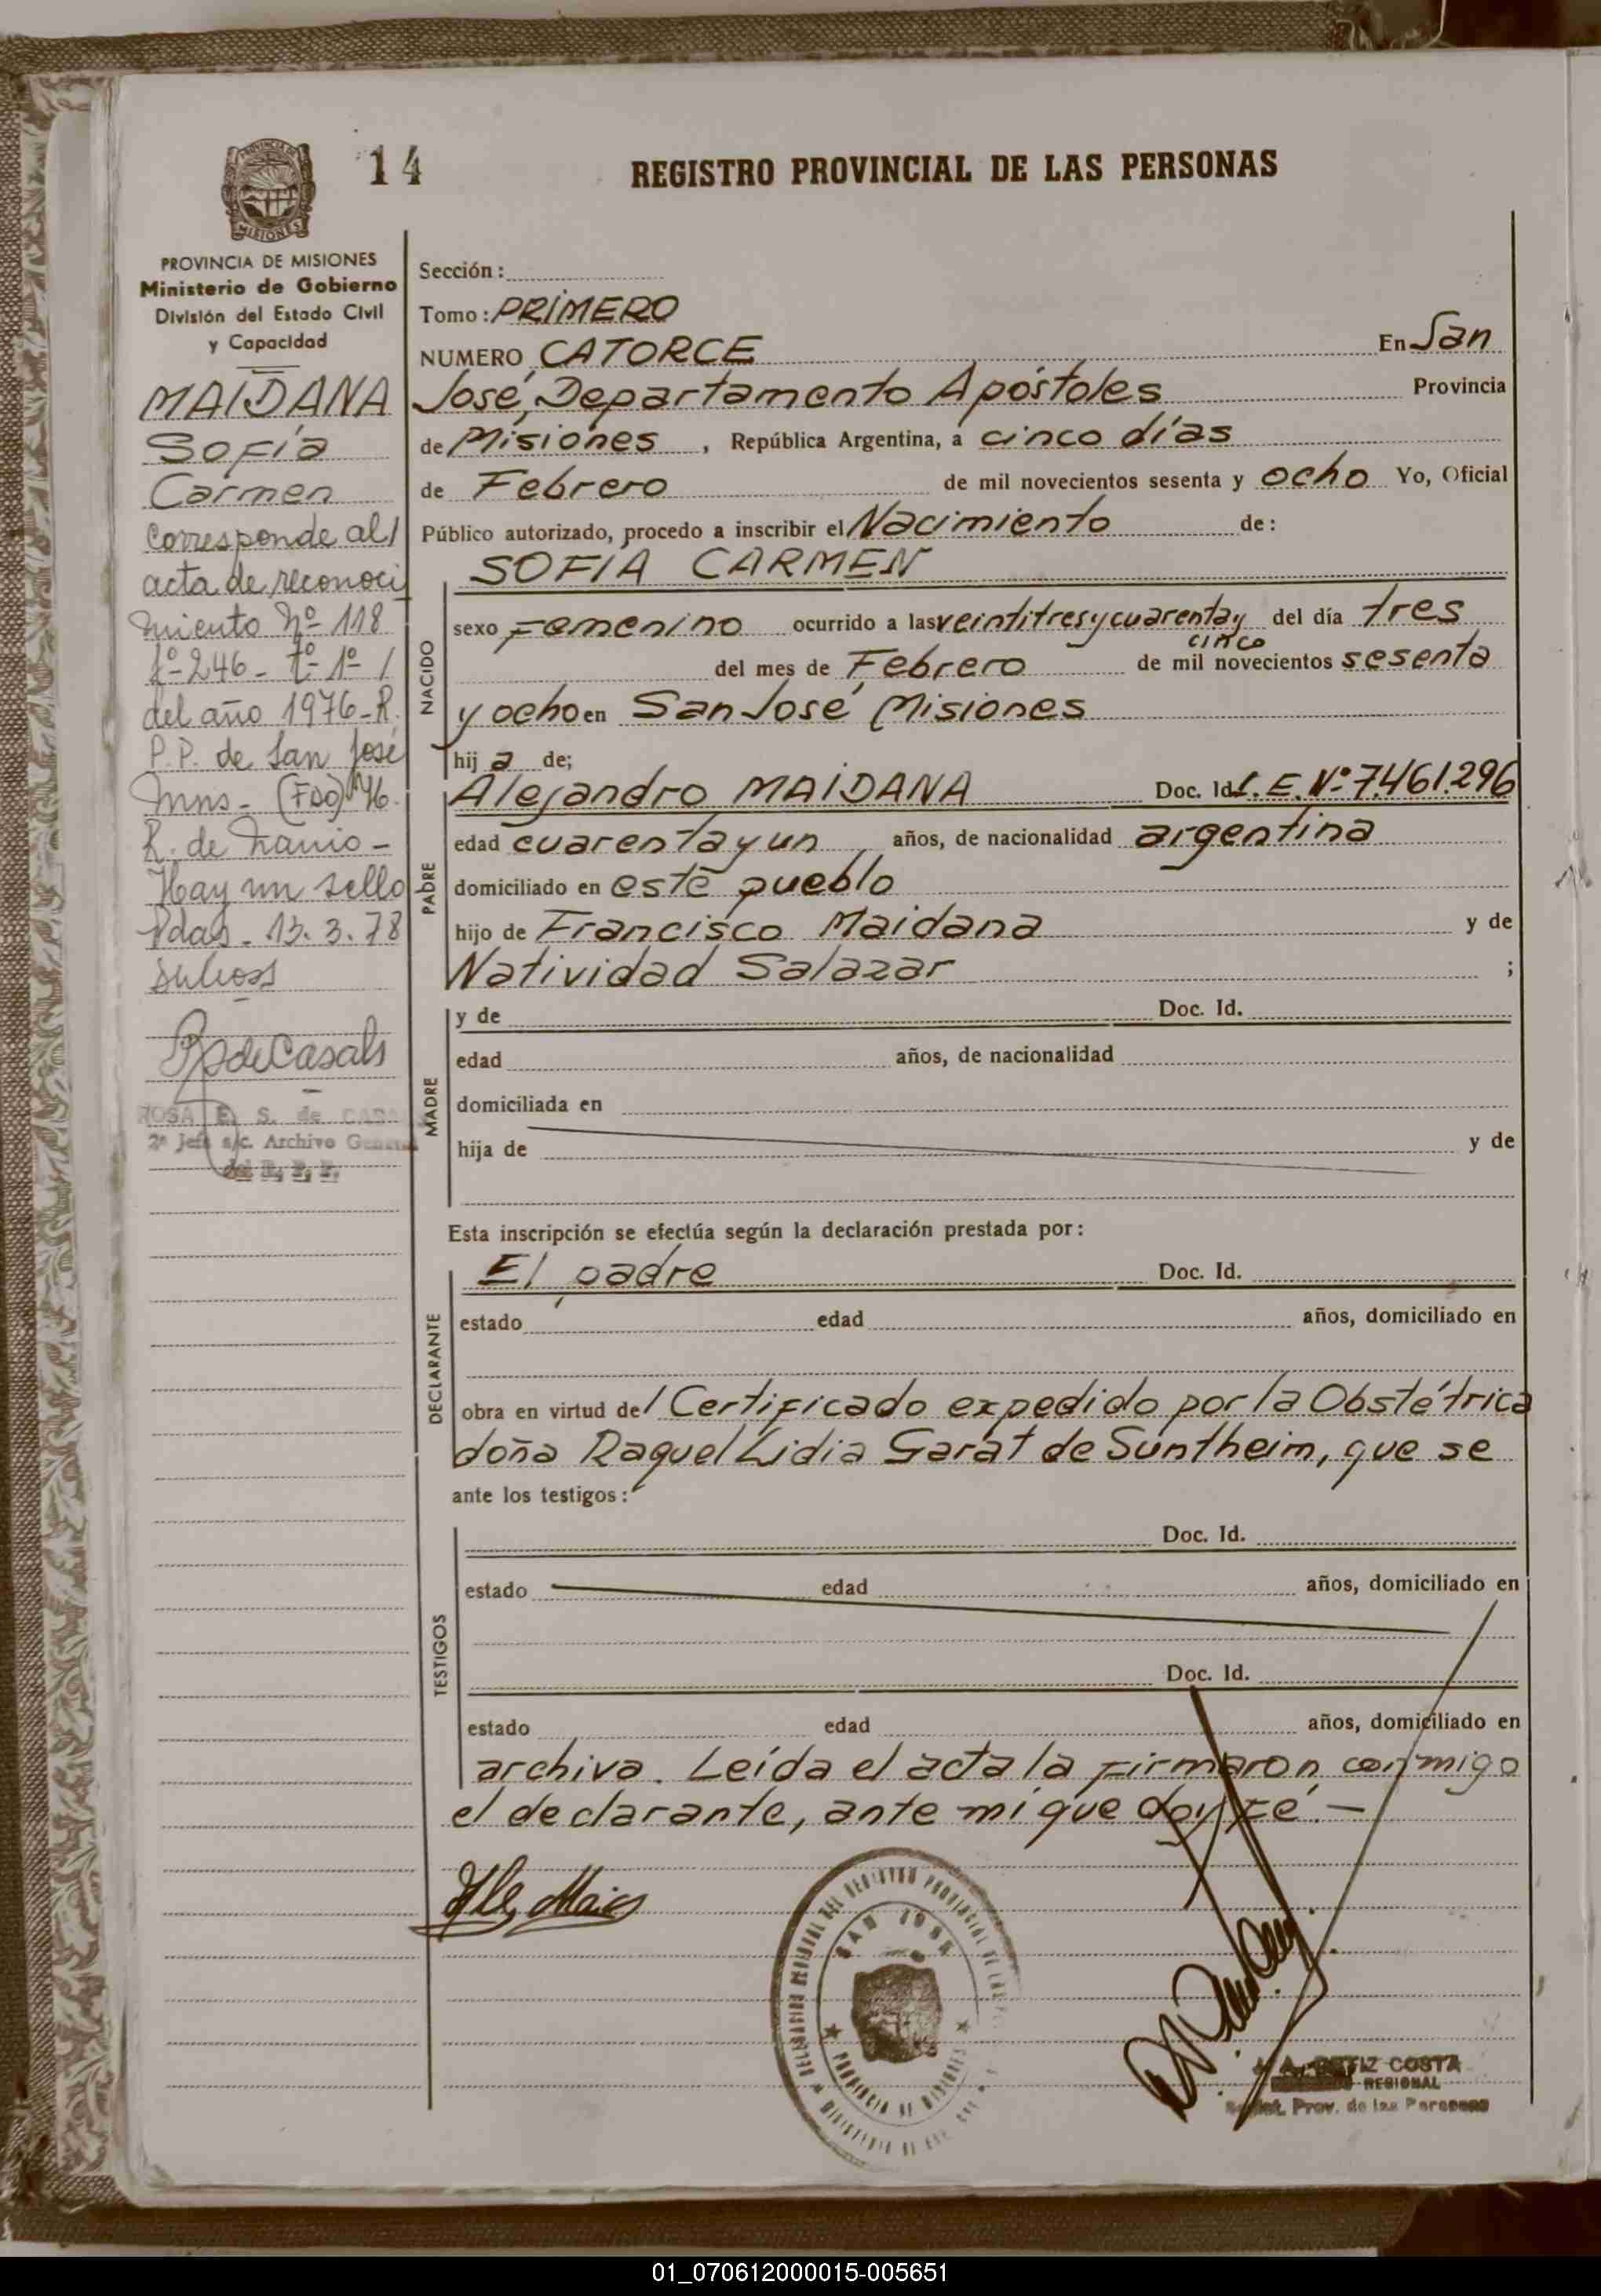 14
REGISTRO PROVINCIAL DE LAS PERSONAS
PROVINCIA DE MISIONES
Ministerio de Gobierno
División del Estado Civil
y Capacidad
MAIDANA
Sofía
Carmen
Corresponde al
acta de reconoci
miento Nº 118
fº 246 - Tº 1º
del año 1976 - R.
P.P. de San José
Mns - (FDO)
R. de
Hay un sello
Pdas. 13.3.78
ROSA E. S. de
2ª Jefe a/c. Archivo General
Sección:
Tomo: PRIMERO
NUMERO CATORCE En San
José, Departamento Apóstoles Provincia
de Misiones, República Argentina, a cinco días
de Febrero de mil novecientos sesenta y ocho Yo, Oficial
Público autorizado, procedo a inscribir el Nacimiento de:
SOFIA CARMEN
NACIDO
sexo Femenino ocurrido a las veintitres y cuarenta y cinco del día tres
del mes de Febrero de mil novecientos sesenta
y ocho en San José Misiones
hij a de;
PADRE
Alejandro MAIDANA Doc. Id. L.E.Nº 7.461.296
edad cuarenta y un años, de nacionalidad argentina
domiciliado en este pueblo
hijo de Francisco Maidana y de
Natividad Salazar ;
MADRE
y de Doc. Id.
edad años, de nacionalidad
domiciliada en
hija de y de
Esta inscripción se efectúa según la declaración prestada por:
DECLARANTE
El padre Doc. Id.
estado edad años, domiciliado en
obra en virtud del Certificado expedido por la Obstétrica
doña Raquel Lidia Garat de Suntheim, que se
ante los testigos:
TESTIGOS
Doc. Id.
estado edad años, domiciliado en
Doc. Id.
estado edad años, domiciliado en
archiva. Leída el acta la firmaron conmigo
el declarante, ante mí que doy fé. —
SAN JOSE
PROVINCIA DE MISIONES
COSTA
REGIONAL
Prov. de las Personas
01_070612000015-005651